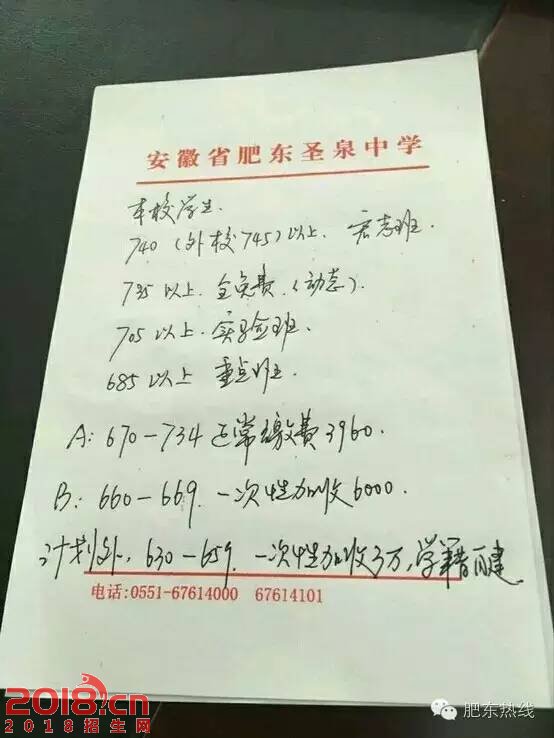 安徽省肥东圣泉中学
本校学生.
740（外校745）以上. 宏志班.
735以上. 全免费.（动态）.
705以上. 实验班.
685以上 重点班.
A: 670-734 正常缴费3960.
B: 660-669. 一次性加收6000.
计划外, 630-659. 一次性加收3万, 学籍可建
电话:0551-67614000 67614101
2018.cn
2018招生网
肥东热线